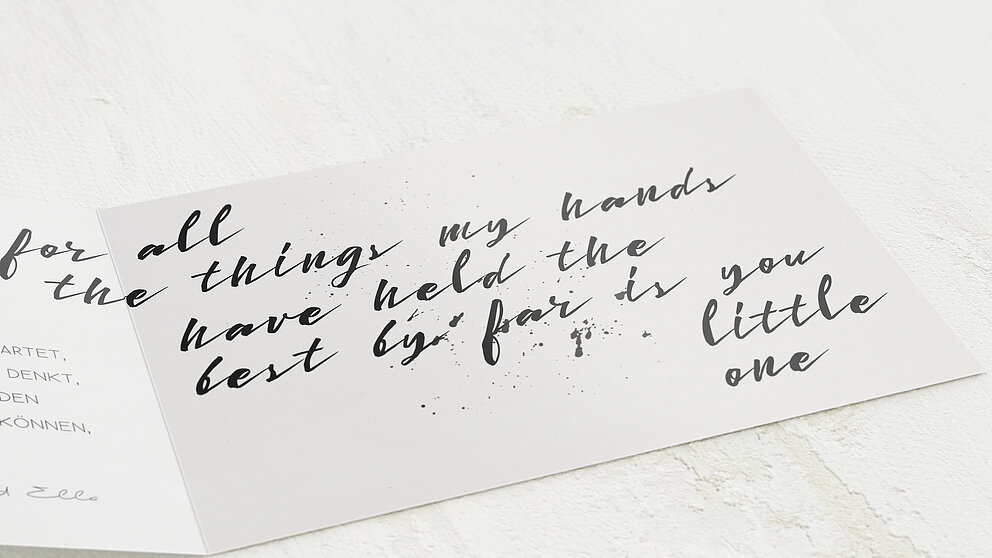 for all
the things my hands
have held the
best by far is you
little
one
ARTET,
DENKT,
DEN
KÖNNEN,
Ella